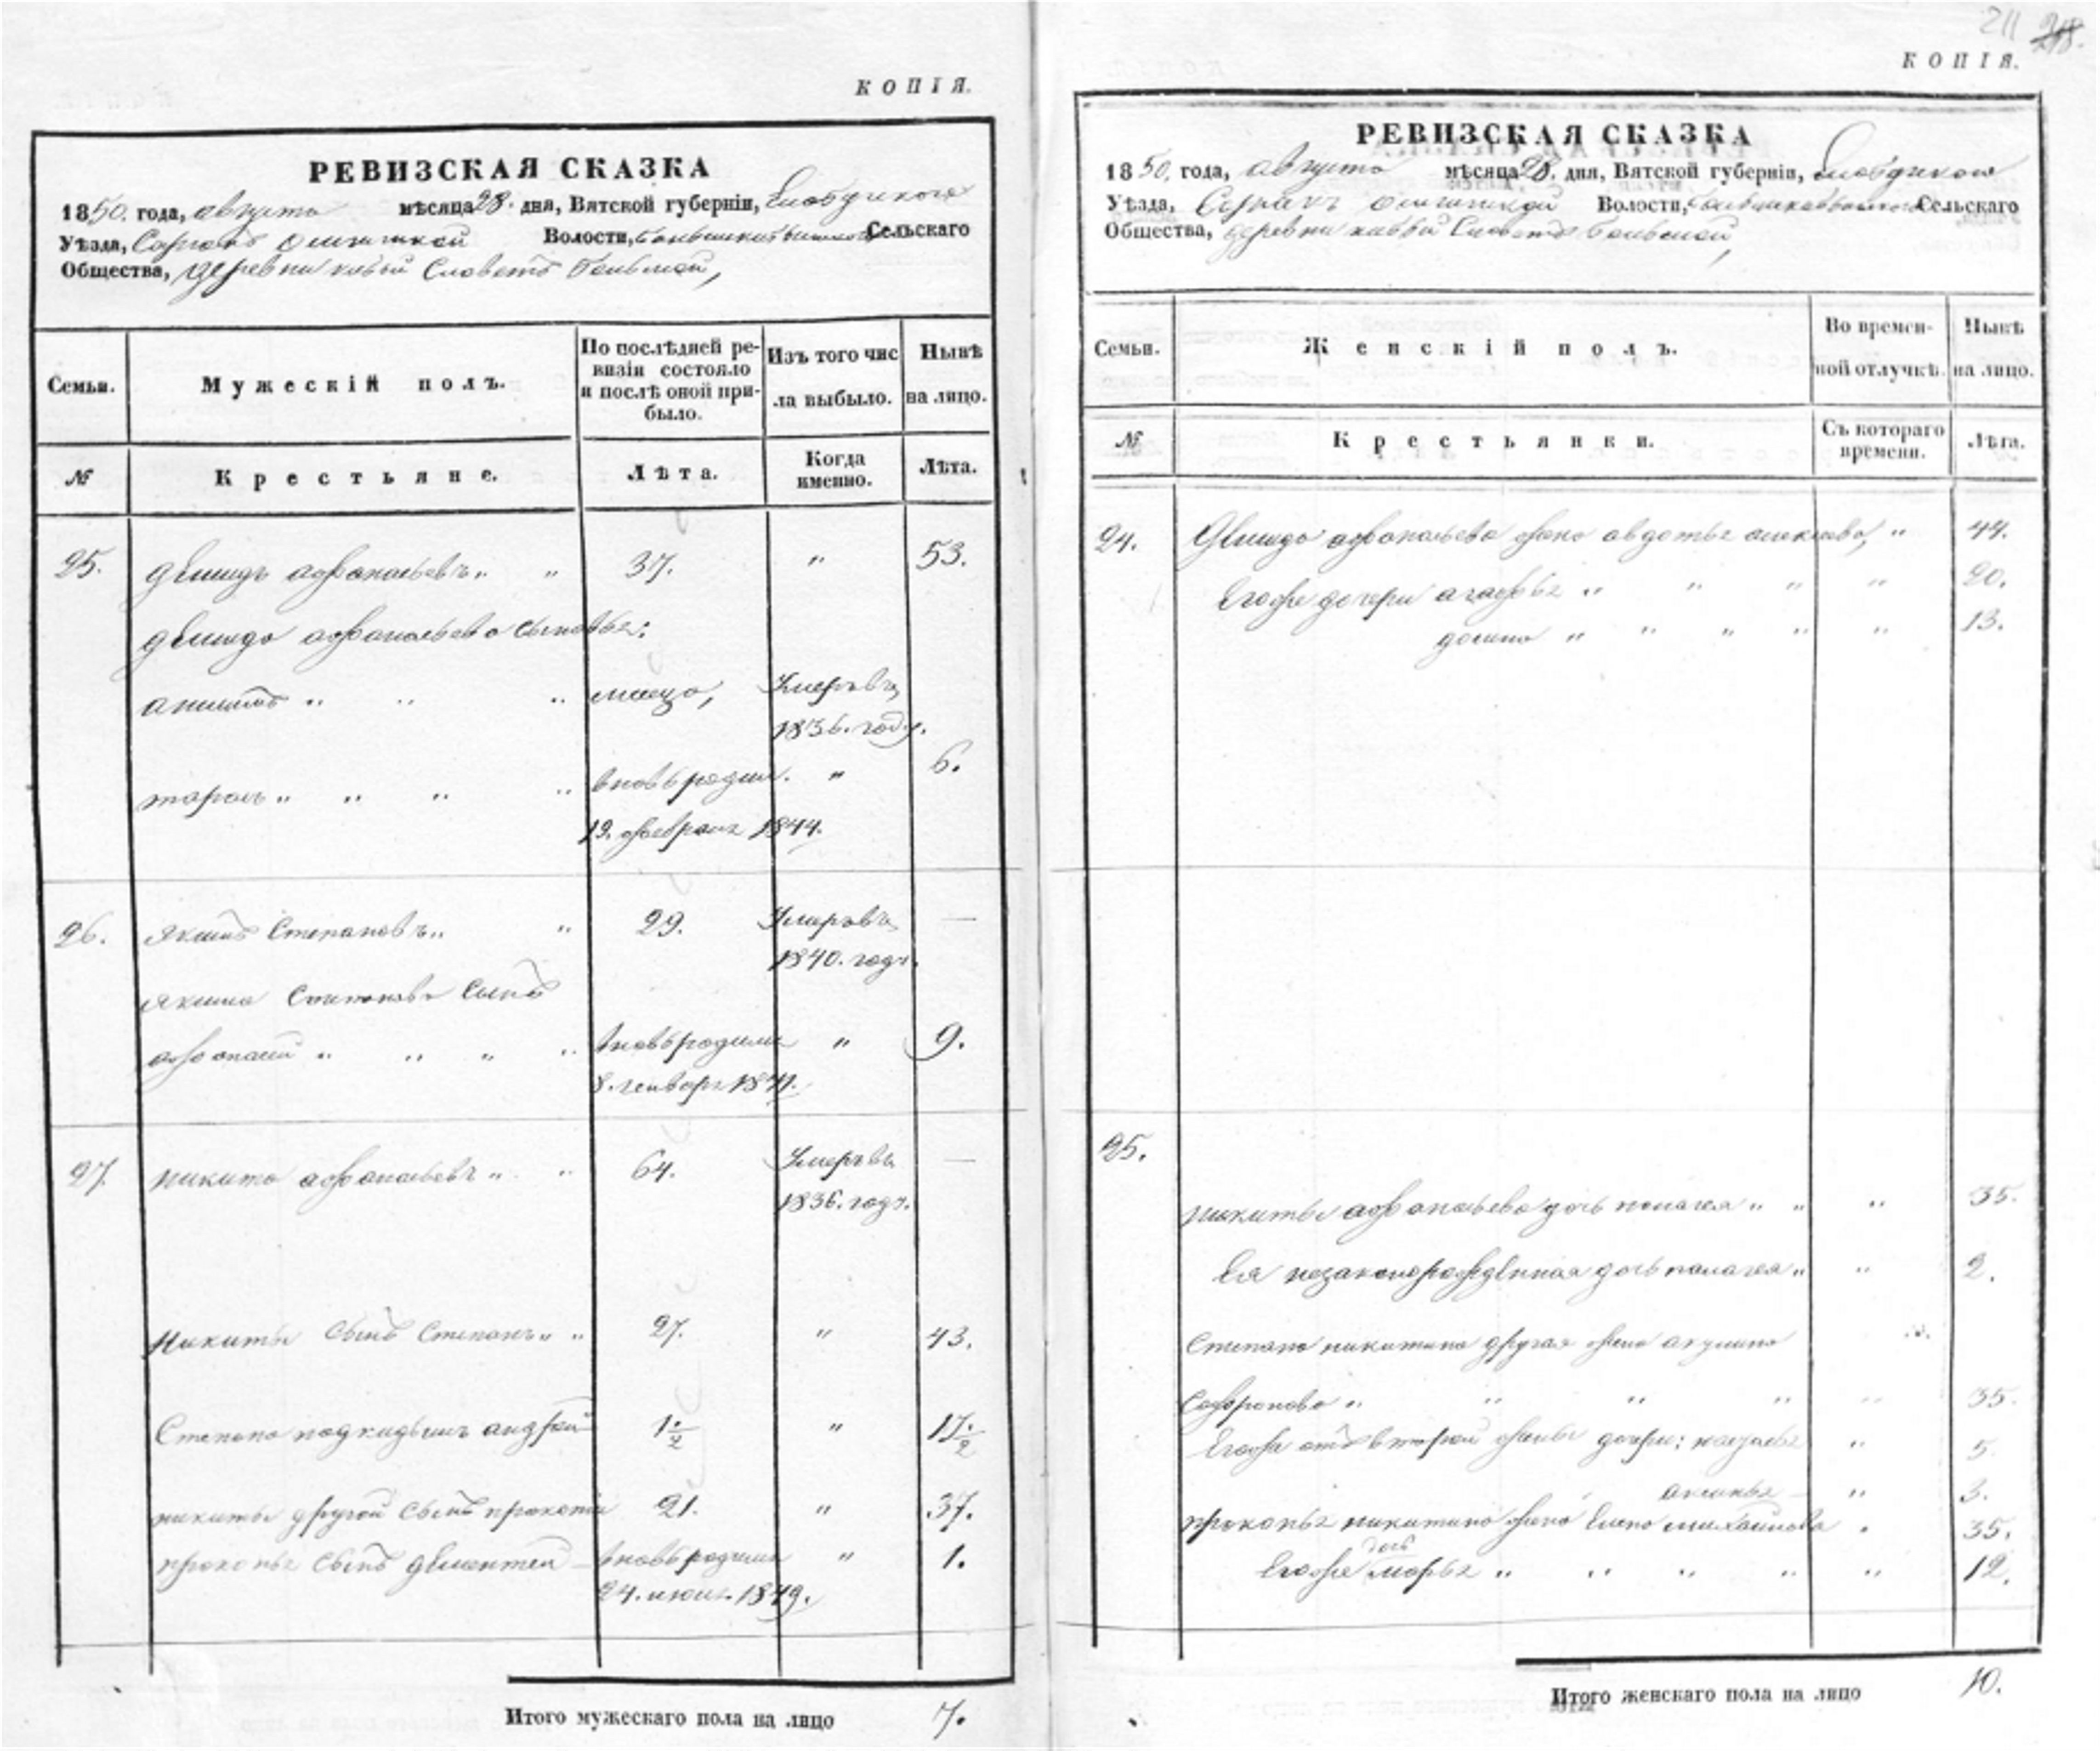 КОПІЯ.
РЕВИЗСКАЯ СКАЗКА
1850. года, августа мѣсяца 28. дня, Вятской губерніи, Слободского
Уѣзда, Волости, Сельскаго
Общества, деревни
Семьи.
Мужескій полъ.
По послѣдней ре-
визіи состояло
и послѣ оной при-
было.
Изъ того чис
ла выбыло.
Нынѣ
на лицо.
№
Крестьяне.
Лѣта.
Когда
именно.
Лѣта.
25. Демидъ Афонасьевъ " " 37. " 53.
Демида Афонасьева сыновья:
" " " Умеръ въ
1836. году.
тарасъ " " " " вновь родил. " 6.
19. февраля 1844.
26. Якимъ Степановъ " " 29. Умеръ въ —
1840. году.
Якима Степанова сынъ
Афонасій " " " " вновь родили " 9.
8. генваря 1841.
27. Никита Афонасьевъ " " 64. Умеръ въ —
1836. году.
Никиты сынъ Степанъ " " 27. " 43.
Степана подкидышъ андрей 1 1/2 " 17 1/2
никиты другой сынъ прокопій 21. " 37.
прокопья сынъ дементей вновь родили " 1.
24. 1849.
Итого мужескаго пола на лицо 7.
211 218.
КОПІЯ.
РЕВИЗСКАЯ СКАЗКА
1850. года, августа мѣсяца 28. дня, Вятской губерніи, Слободского
Уѣзда, Волости, Сельскаго
Общества, деревни
Семьи.
Женскій полъ.
Во времен-
ной отлучкѣ.
Нынѣ
на лицо.
№
Крестьянки.
Съ котораго
времени.
Лѣта.
24. Демида афонасьева жена авдотья " 44.
Егоже дочери агафья " " " " 20.
" " " " " 13.
25.
никиты афонасьева дочь пелагея " " " 35.
Ея незаконорожденная дочь пелагея " " 2.
Степана никитина другая жена акулина
Софронова " " " " " 35.
Егоже отъ второй жены дочери: " 5.
аксинья " 3.
прокопья никитина жена Елена Михайлова " 35.
Егоже дочь марья " " " " " 12.
Итого женскаго пола на лицо 10.